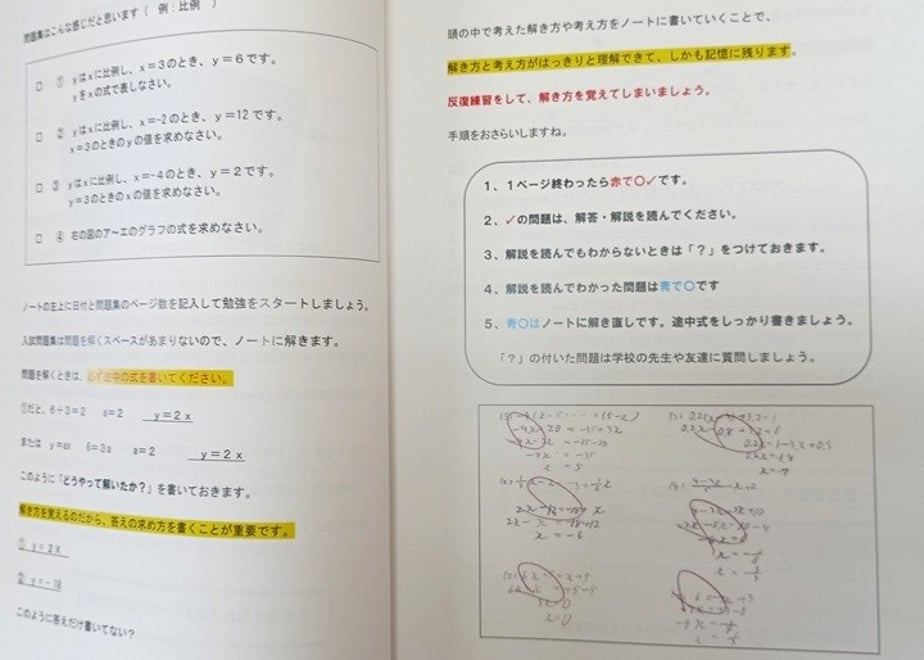 問題集はこんな感じだと思います（ 例：比例 ）
□ ① yはxに比例し、x＝3のとき、y＝6です。
yをxの式で表しなさい。
□ ② yはxに比例し、x=-2のとき、y=12 です。
x＝3のときのyの値を求めなさい。
□ ③ yはxに比例し、x=-4のとき、y＝2です。
y＝3のときのxの値を求めなさい。
□ ④ 右の図のア～エのグラフの式を求めなさい。
ノートの左上に日付と問題集のページ数を記入して勉強をスタートしましょう。
入試問題集は問題を解くスペースがあまりないので、ノートに解きます。
問題を解くときは、必ず途中の式を書いてください。
①だと、6÷3＝2 a=2 y＝2 x
または y=ax 6＝3a a＝2 y＝2 x
このように「どうやって解いたか？」を書いておきます。
解き方を覚えるのだから、答えの求め方を書くことが重要です。
① y＝2X
② y＝－18
このように答えだけ書いてない？
頭の中で考えた解き方や考え方をノートに書いていくことで、
解き方と考え方がはっきりと理解できて、しかも記憶に残ります。
反復練習をして、解き方を覚えてしまいましょう。
手順をおさらいしますね。
1、1ページ終わったら赤で〇✓です。
2、✓の問題は、解答・解説を読んでください。
3、解説を読んでもわからないときは「？」をつけておきます。
4、解説を読んでわかった問題は青で〇です
5、青〇はノートに解き直しです。途中式をしっかり書きましょう。
「？」の付いた問題は学校の先生や友達に質問しましょう。
x = 5
x = -6
x=0